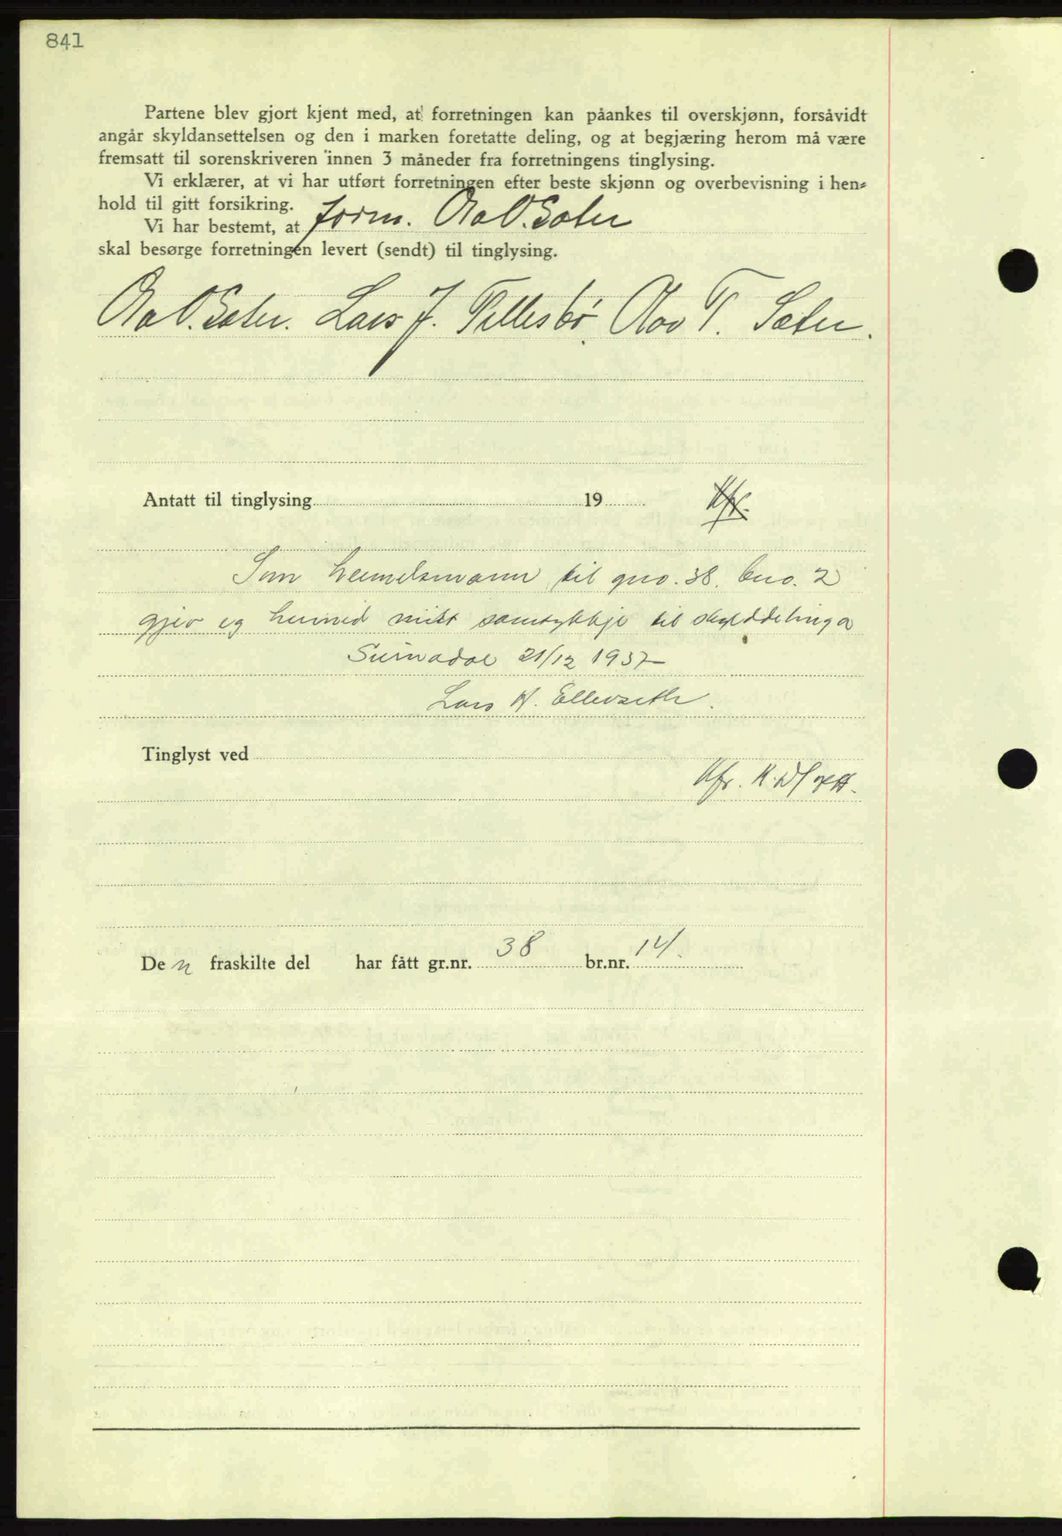 841
Partene blev gjort kjent med, at forretningen kan påankes til overskjønn, forsåvidt
angår skyldansettelsen og den i marken foretatte deling, og at begjæring herom må være
fremsatt til sorenskriveren innen 3 måneder fra forretningens tinglysing.
Vi erklærer, at vi har utført forretningen efter beste skjønn og overbevisning i hen-
hold til gitt forsikring.
Vi har bestemt, at form. Ola O. Sæter
skal besørge forretningen levert (sendt) til tinglysing.
Ola O. Sæter. Lars J. Tellesbø, Olav T. Sæter.
Antatt til tinglysing 19
Kfr.
Som heimelsmann til gno. 38 bno. 2
gjev eg hermed mitt samtykkje til skylddelinga
Surnadal 21/12 1937
Lars H. Ellevseth.
Tinglyst ved
Kfr.
Den fraskilte del har fått gr.nr. 38 br.nr. 14.